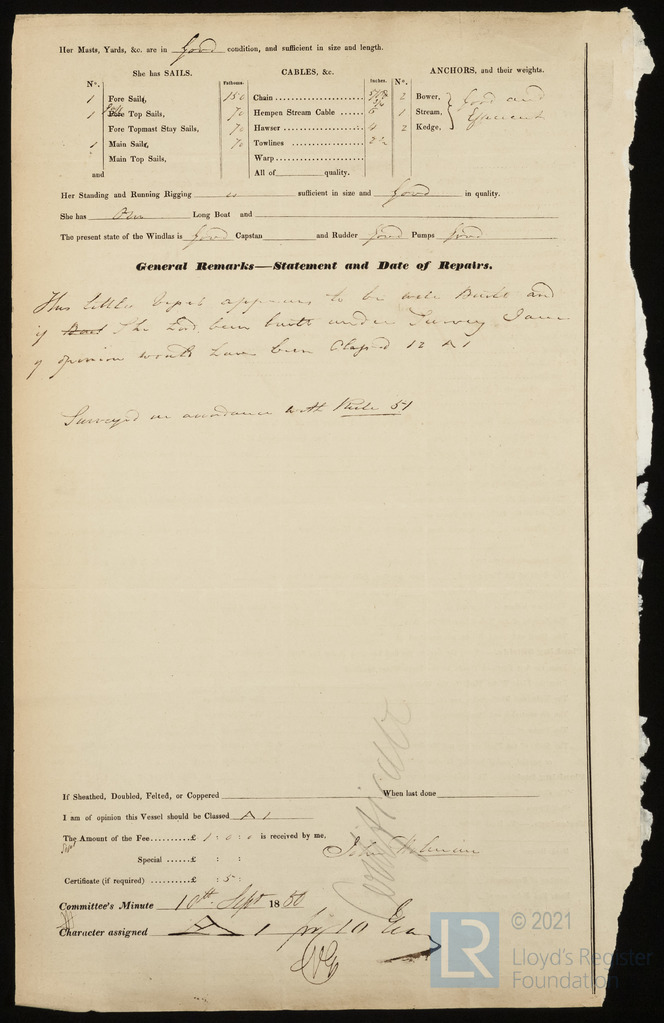 Her Masts, Yards, &c. are in Good condition, and sufficient in size and length.
She has SAILS.
CABLES, &c.
ANCHORS, and their weights.
No.
Fathoms.
Inches.
No.
1 Fore Sails, 150 Chain
2 Bower, Good and
1 Fore Top Sails, 70 Hempen Stream Cable 6
1 Stream,
Fore Topmast Stay Sails, 70 Hawser 4
2 Kedge,
1 Main Sails, 70 Towlines 2½
Main Top Sails, Warp
and All of quality.
Her Standing and Running Rigging sufficient in size and Good in quality.
She has One Long Boat and
The present state of the Windlas is Good Capstan and Rudder Good Pumps Good
General Remarks—Statement and Date of Repairs.
This little Vessel appears to be well Built and
if She had been built under Survey I am
of opinion would have been Classed 12 A 1
Surveyed in accordance with Rule 51
If Sheathed, Doubled, Felted, or Coppered When last done
I am of opinion this Vessel should be Classed A 1
The Amount of the Fee.........£ 1 : 0 : 0 is received by me,
Special ......£ : :
John
Certificate (if required) .........£ : 5 :
Certificate
Committee's Minute 10th Sept 1850
Character assigned A 1 for 10 Years
© 2021
LR
Lloyd's Register
Foundation